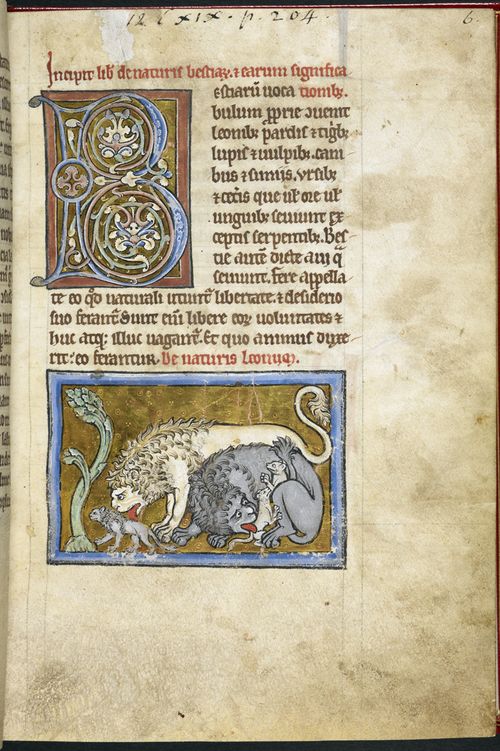 12 C XIX. p. 204.
6.
Incipit lib de naturis bestiaꝝ. ⁊ earum significa
B estiarū uoca tionibꝫ.
bulum ꝓprie ↄuenit
leonibꝫ pardis ⁊ tigbꝫ
lupis ⁊ uulpibꝫ. cani
bus ⁊ simiis. ursibꝫ
⁊ cet͛is que ul͛ ore ul͛
unguibꝫ seuiunt ex
ceptis serpentibꝫ. Bes
tie autē dicte a ui q̄
seuiunt. fere appella
te eo qͦ naturali utunt͛ libertate. ⁊ desiderio
suo ferant͛. Sunt eni libere eoꝝ uoluntates ⁊
huc atqꝫ illuc uagant͛. Et quo animus duxe
rit: eo ferantur. De naturis leonuꝫ.